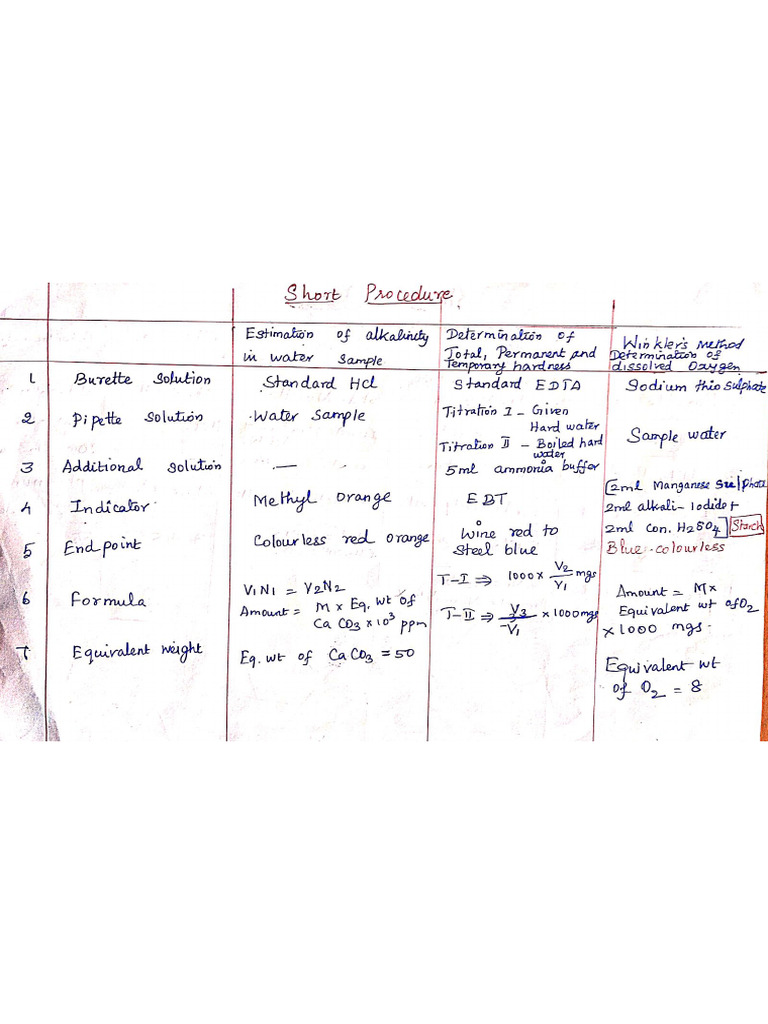 Short Procedure
Estimation of alkalinity
in water sample
Determination of
Total, Permanent and
Temporary hardness
Winkler's Method
Determination of
dissolved Oxygen
1 Burette Solution
Standard Hcl
Standard EDTA
Sodium thio sulphate
2 Pipette Solution
Water Sample
Titration I - Given
Hard water
Titration II - Boiled hard
water
Sample water
3 Additional Solution
—
5ml ammonia buffer
[2ml Manganese Sulphate
2ml alkali - Iodide +
2ml con. H2SO4] Starch
4 Indicator
Methyl Orange
EBT
5 End point
Colourless red orange
Wine red to
Steel blue
Blue - colourless
6 Formula
V1N1 = V2N2
Amount = M x Eq. wt of
CaCO3 x 10³ ppm
T-I ⇒ 1000 x V2/V1 mgs
T-II ⇒ V3/V1 x 1000mgs
Amount = Mx
Equivalent wt of O2
x 1000 mgs.
7 Equivalent weight
Eq. wt of CaCO3 = 50
Equivalent wt
of O2 = 8